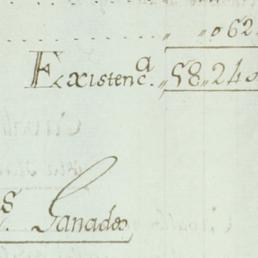 „ „ 062
Existenc.ª „ 58„ 240
s. Ganados